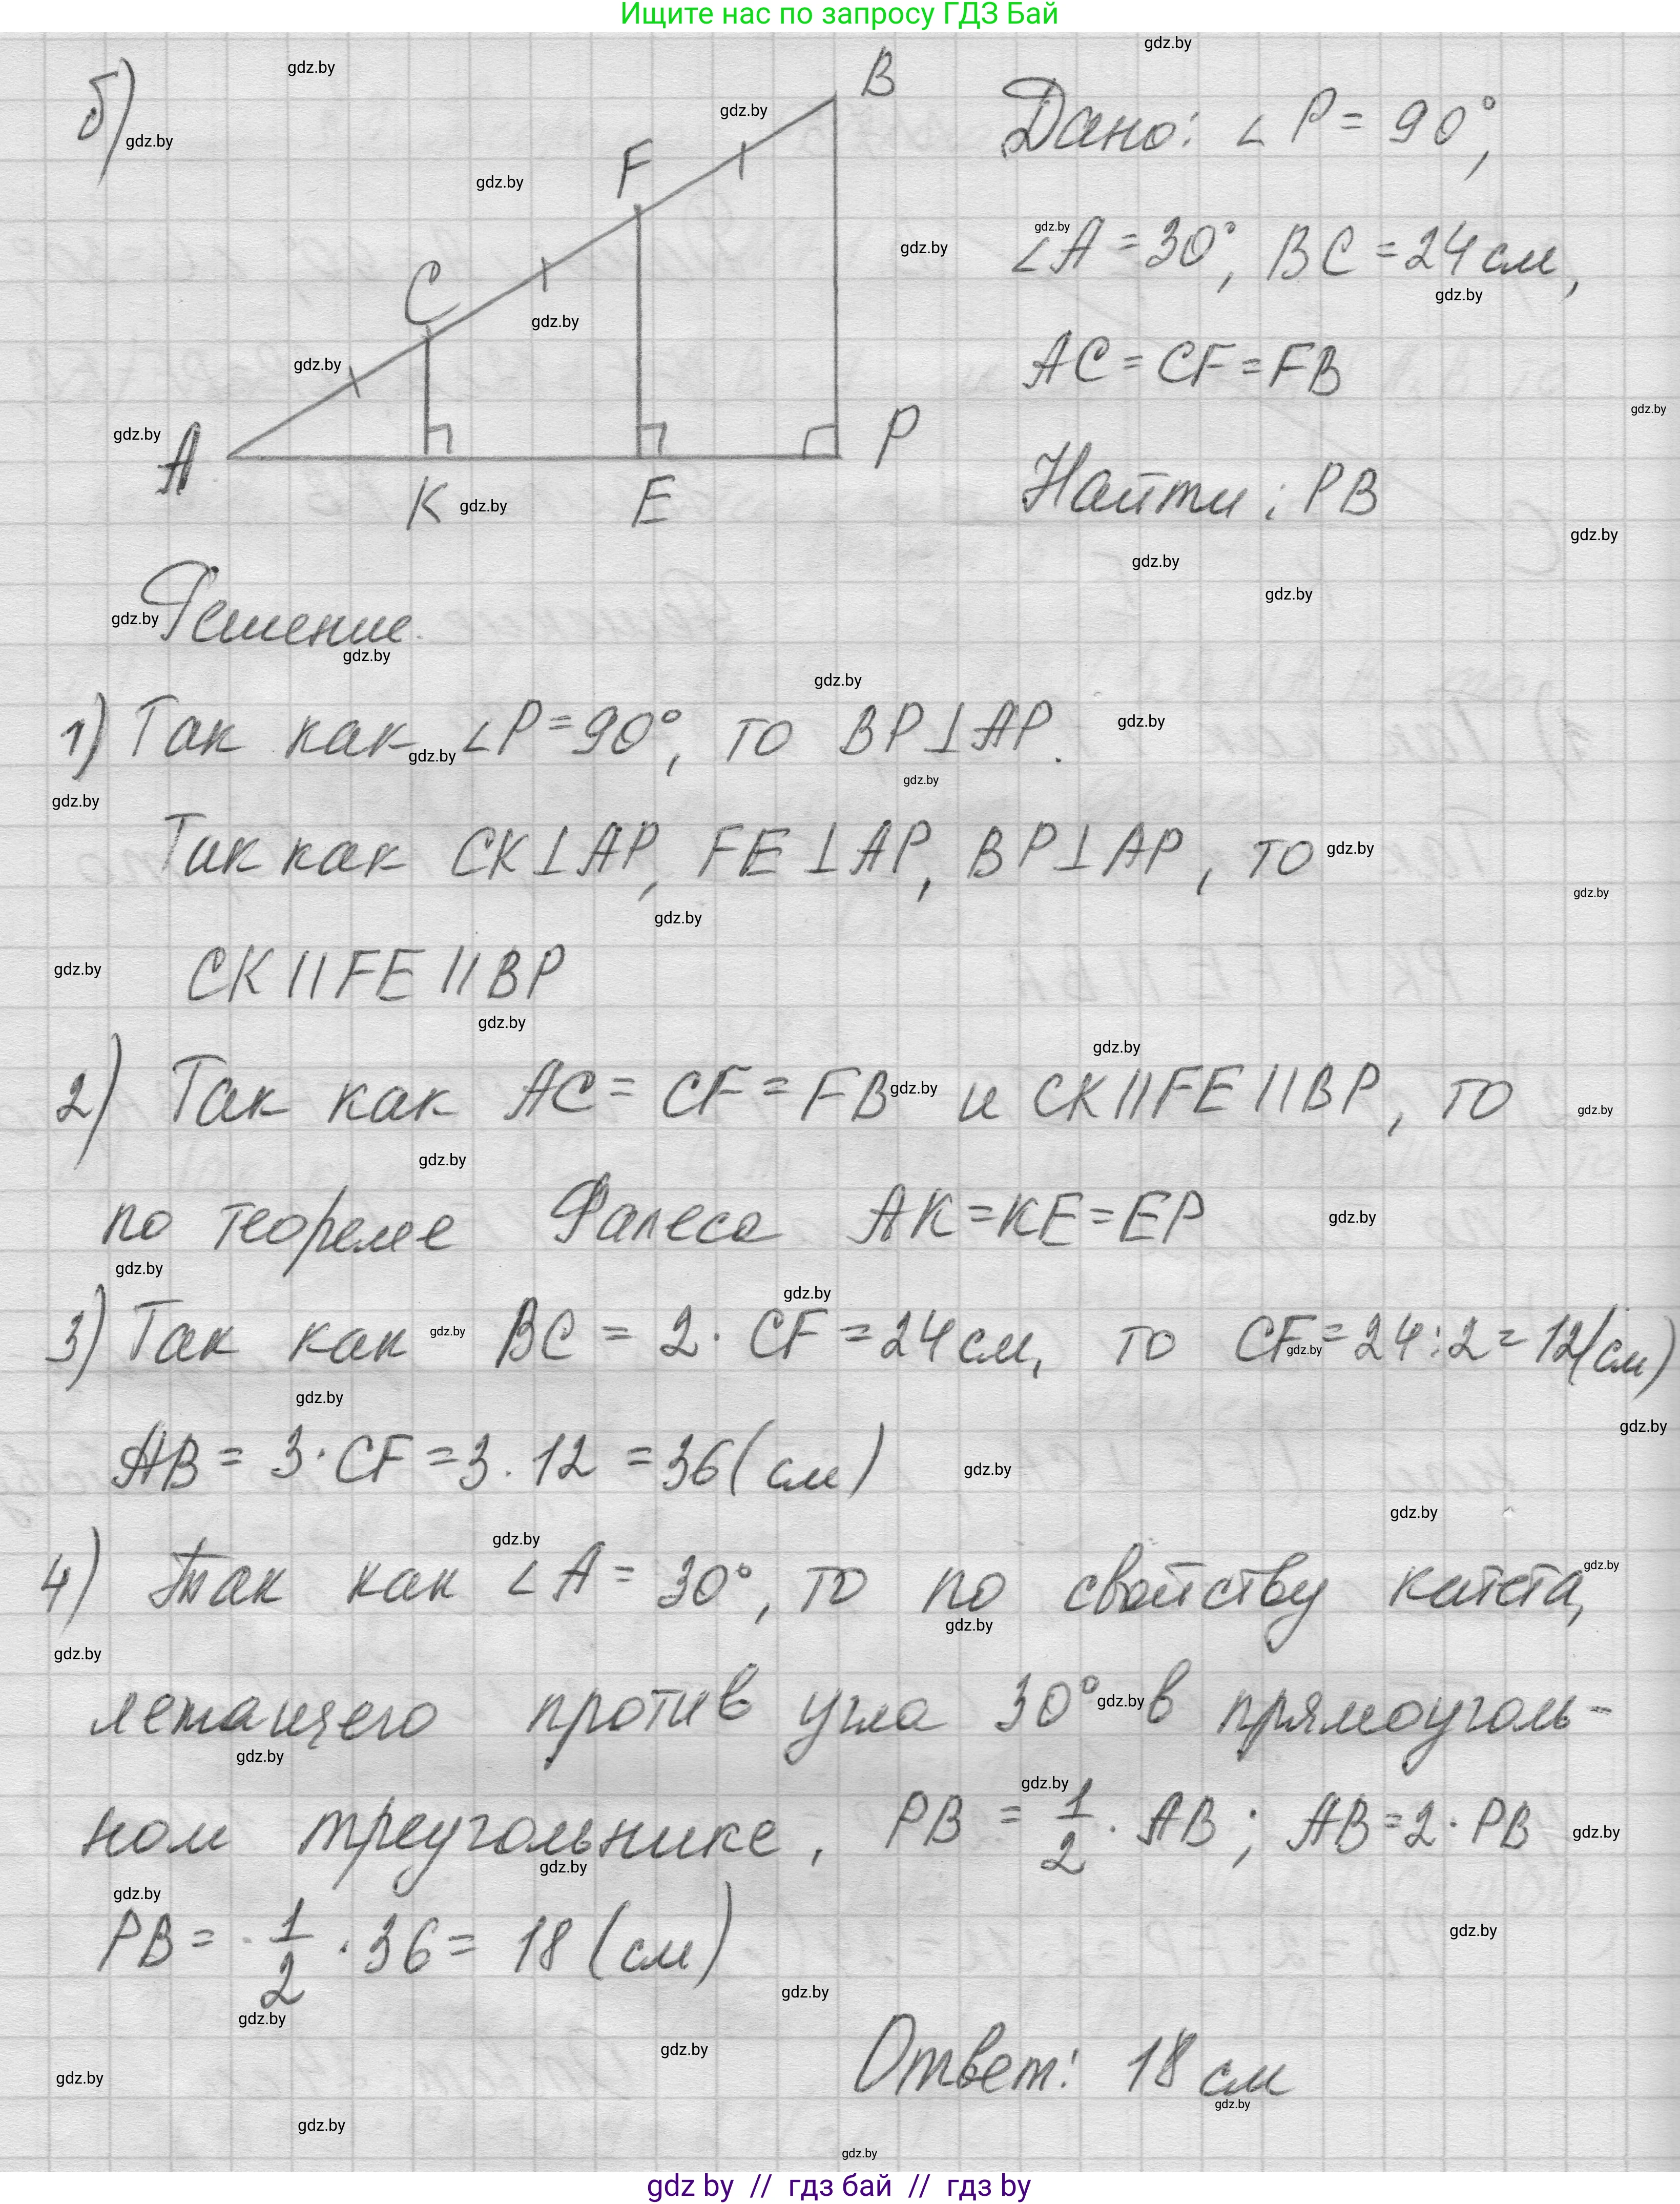 Ищите нас по запросу ГДЗ Бай
б)
B
F
C
A
K
E
P
Дано: ∠P = 90°,
∠A = 30°, BC = 24 см,
AC = CF = FB
Найти: PB
Решение.
1) Так как ∠P = 90°, то BP⊥AP.
Так как CK⊥AP, FE⊥AP, BP⊥AP, то
CK||FE||BP
2) Так как AC = CF = FB и CK||FE||BP, то
по теореме Фалеса AK=KE=EP
3) Так как BC = 2 · CF = 24 см, то CF = 24:2 = 12(см)
AB = 3 · CF = 3 · 12 = 36 (см)
4) Так как ∠A = 30°, то по свойству катета,
лежащего против угла 30° в прямоуголь-
ном треугольнике, PB = 1/2 · AB; AB = 2 · PB
PB = 1/2 · 36 = 18 (см)
Ответ: 18 см
gdz by // гдз бай // gdz by